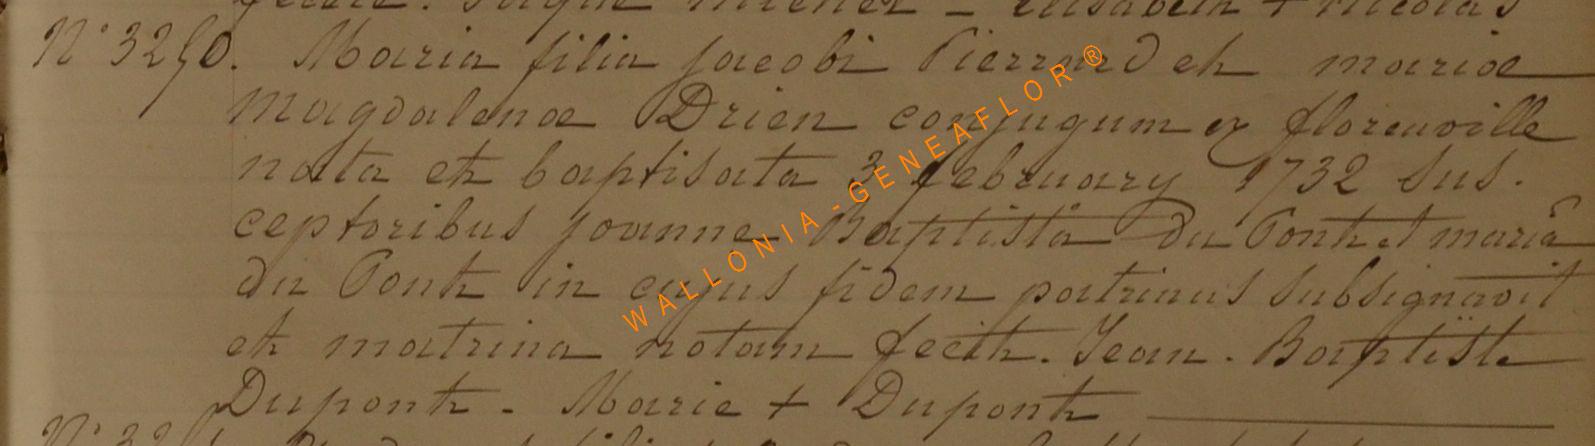 fecit. Jaque Michel - Elisabeth + Nicolas
N° 3250. Maria filia Jacobi Pierrard et mariæ
magdalenæ Drien conjugum ex florenville
nata et baptisata 3 february 1732 sus.
ceptoribus joanne Baptistâ du Pont et mariâ
du Pont in cujus fidem patrinus subsignavit
et matrina notam fecit. Jean. Baptiste
Dupont. Marie + Dupont
WALLONIA-GENEAFLOR®